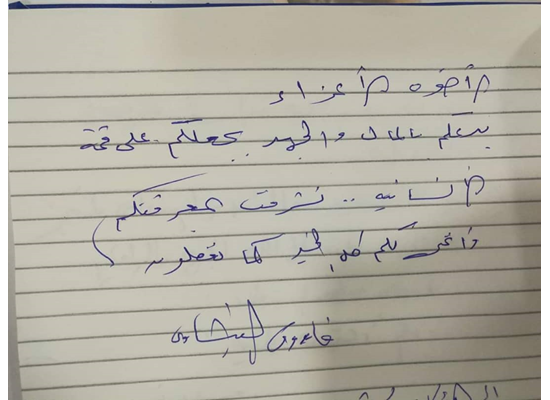 الأخوة الأعزاء
بذلكم بالمال والجهد .. يجعلكم على قمة
الإنسانية .. تشرفت بمعرفتكم
وأتمنى لكم كل الخير كما تفعلون
فاروق